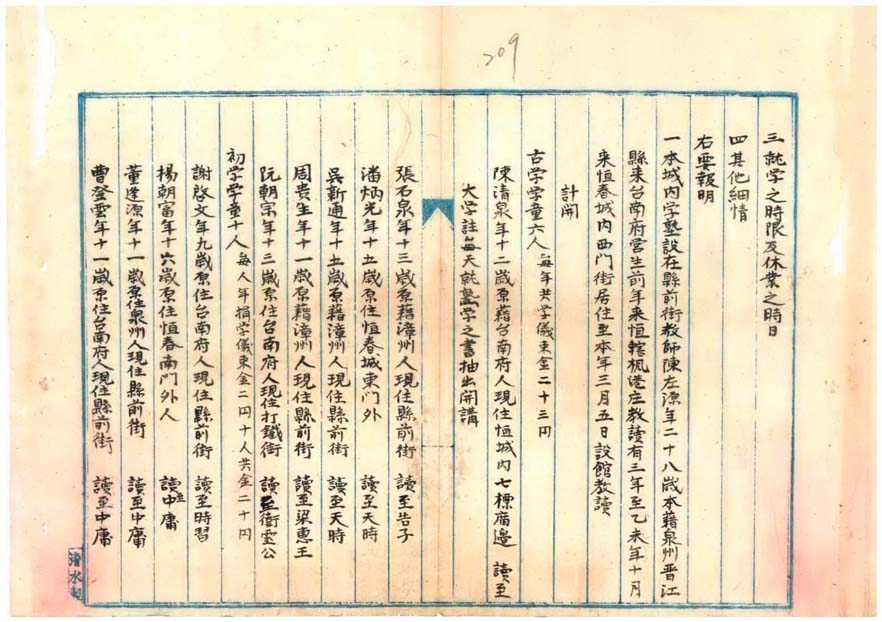 209
三 就学之時限及休業之時日
四 其他細情
右要報明
一 本城内学塾設在縣前街教師陳左漂年二十八歲本籍泉州晋江
縣来台南府営生前年来恒轄楓港庄教讀有三年至乙未年十月
来恒春城内西門街居住至本年三月五日設館教讀
計開
古学学童六人 每年共学儀束金二十三円
陳清泉年十二歲原籍台南府人現住恒城内七標廣邊 讀至
大学註每天就塾学之書抽出開講
張石泉年十三歲原藉漳州人現住縣前街 讀至告子
潘炳光年十五歲原住恒春城東門外 讀至天時
吳新通年十五歲原籍漳州人現住縣前街 讀至天時
周貴生年十一歲原藉漳州人現住縣前街 讀至梁惠王
阮朝宗年十三歲原住台南府人現住打鐵街 讀至衛霊公
初学学童十人 每人年捐学儀束金二円十人共金二十円
謝啓文年九歲原住台南府人現住縣前街 讀至時習
楊朝富年十六歲原住恒春南門外人 讀至中庸
董逢源年十一歲原住泉州人現住縣前街 讀至中庸
曹登雲年十一歲原住台南府人現住縣前街 讀至中庸
清水製